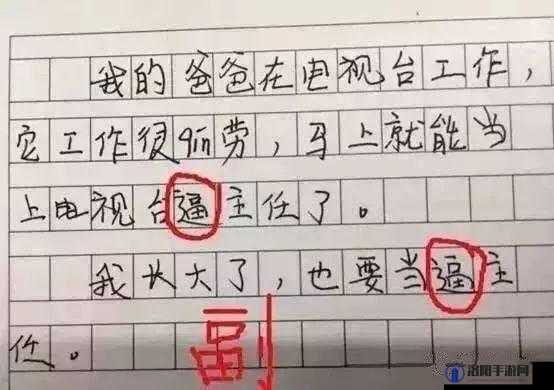 我的爸爸在电视台工作，
它工作很qin劳，马上就能当
上电视台逼主任了。
我长大了，也要当逼主
任。
副
洛阳手游网